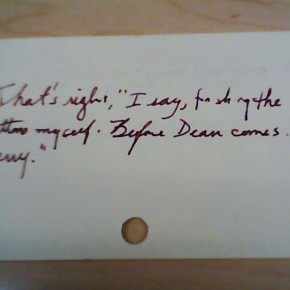 That's right," I say, finishing the
myself. Before Dean comes.